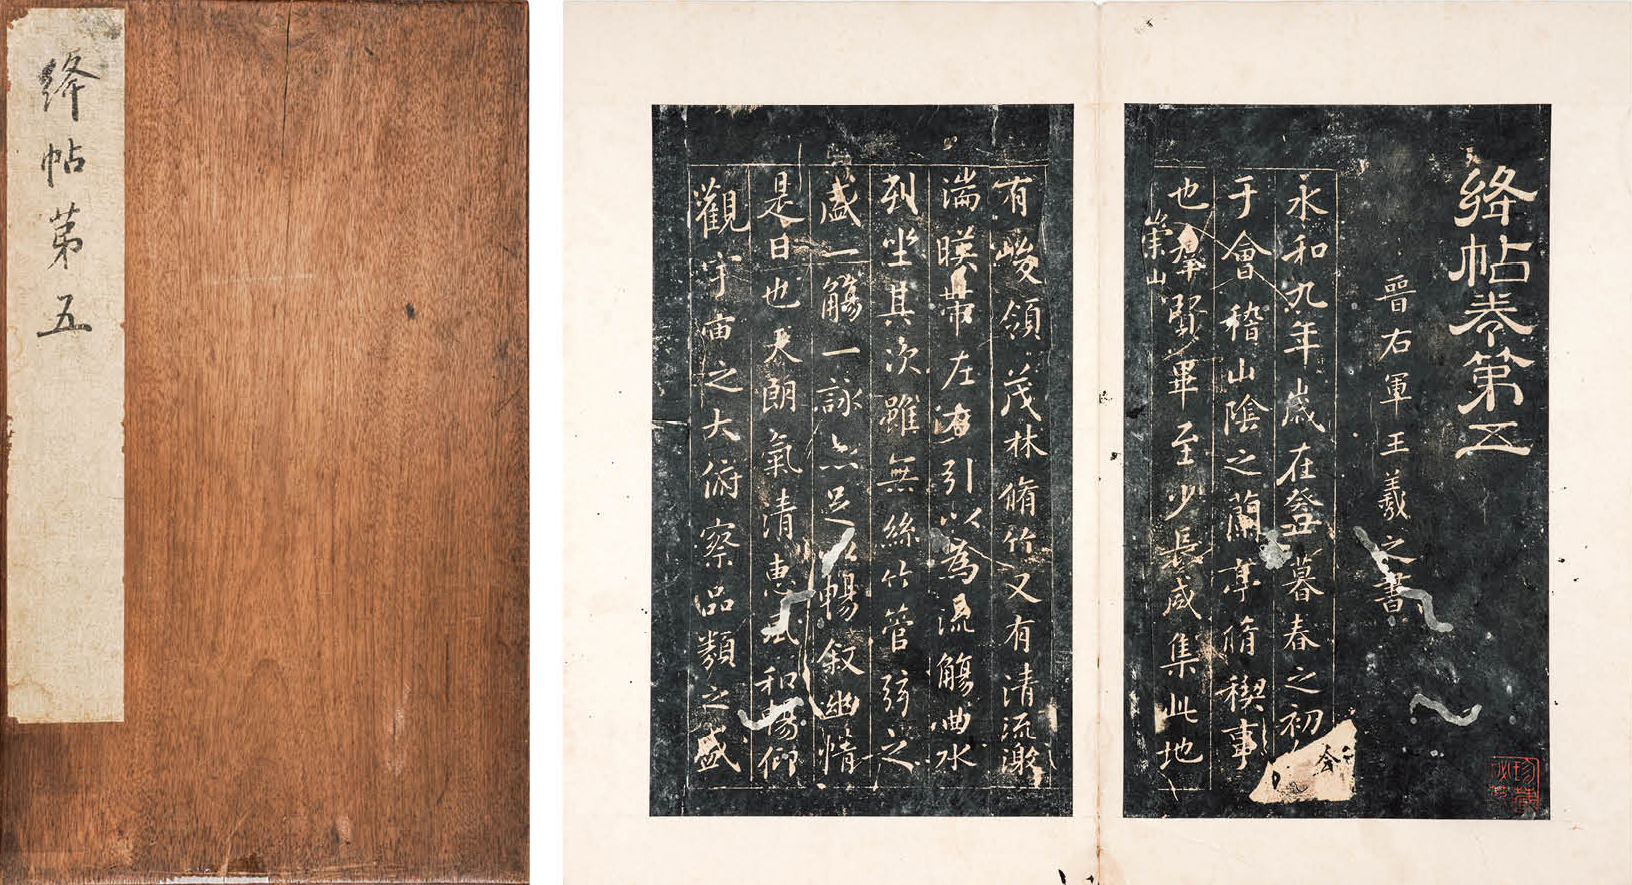 絳帖苐五
絳帖卷第五
晉右軍王羲之書
永和九年歲在癸丑暮春之初
于會稽山陰之蘭亭脩稧事
也羣賢畢至少長咸集此地
崇山
有峻領茂林脩竹又有清流激
湍暎帶左右引以為流觴曲水
列坐其次雖無絲竹管弦之
盛一觴一詠亦足以暢敘幽情
是日也天朗氣清惠風和暢仰
觀宇宙之大俯察品類之盛